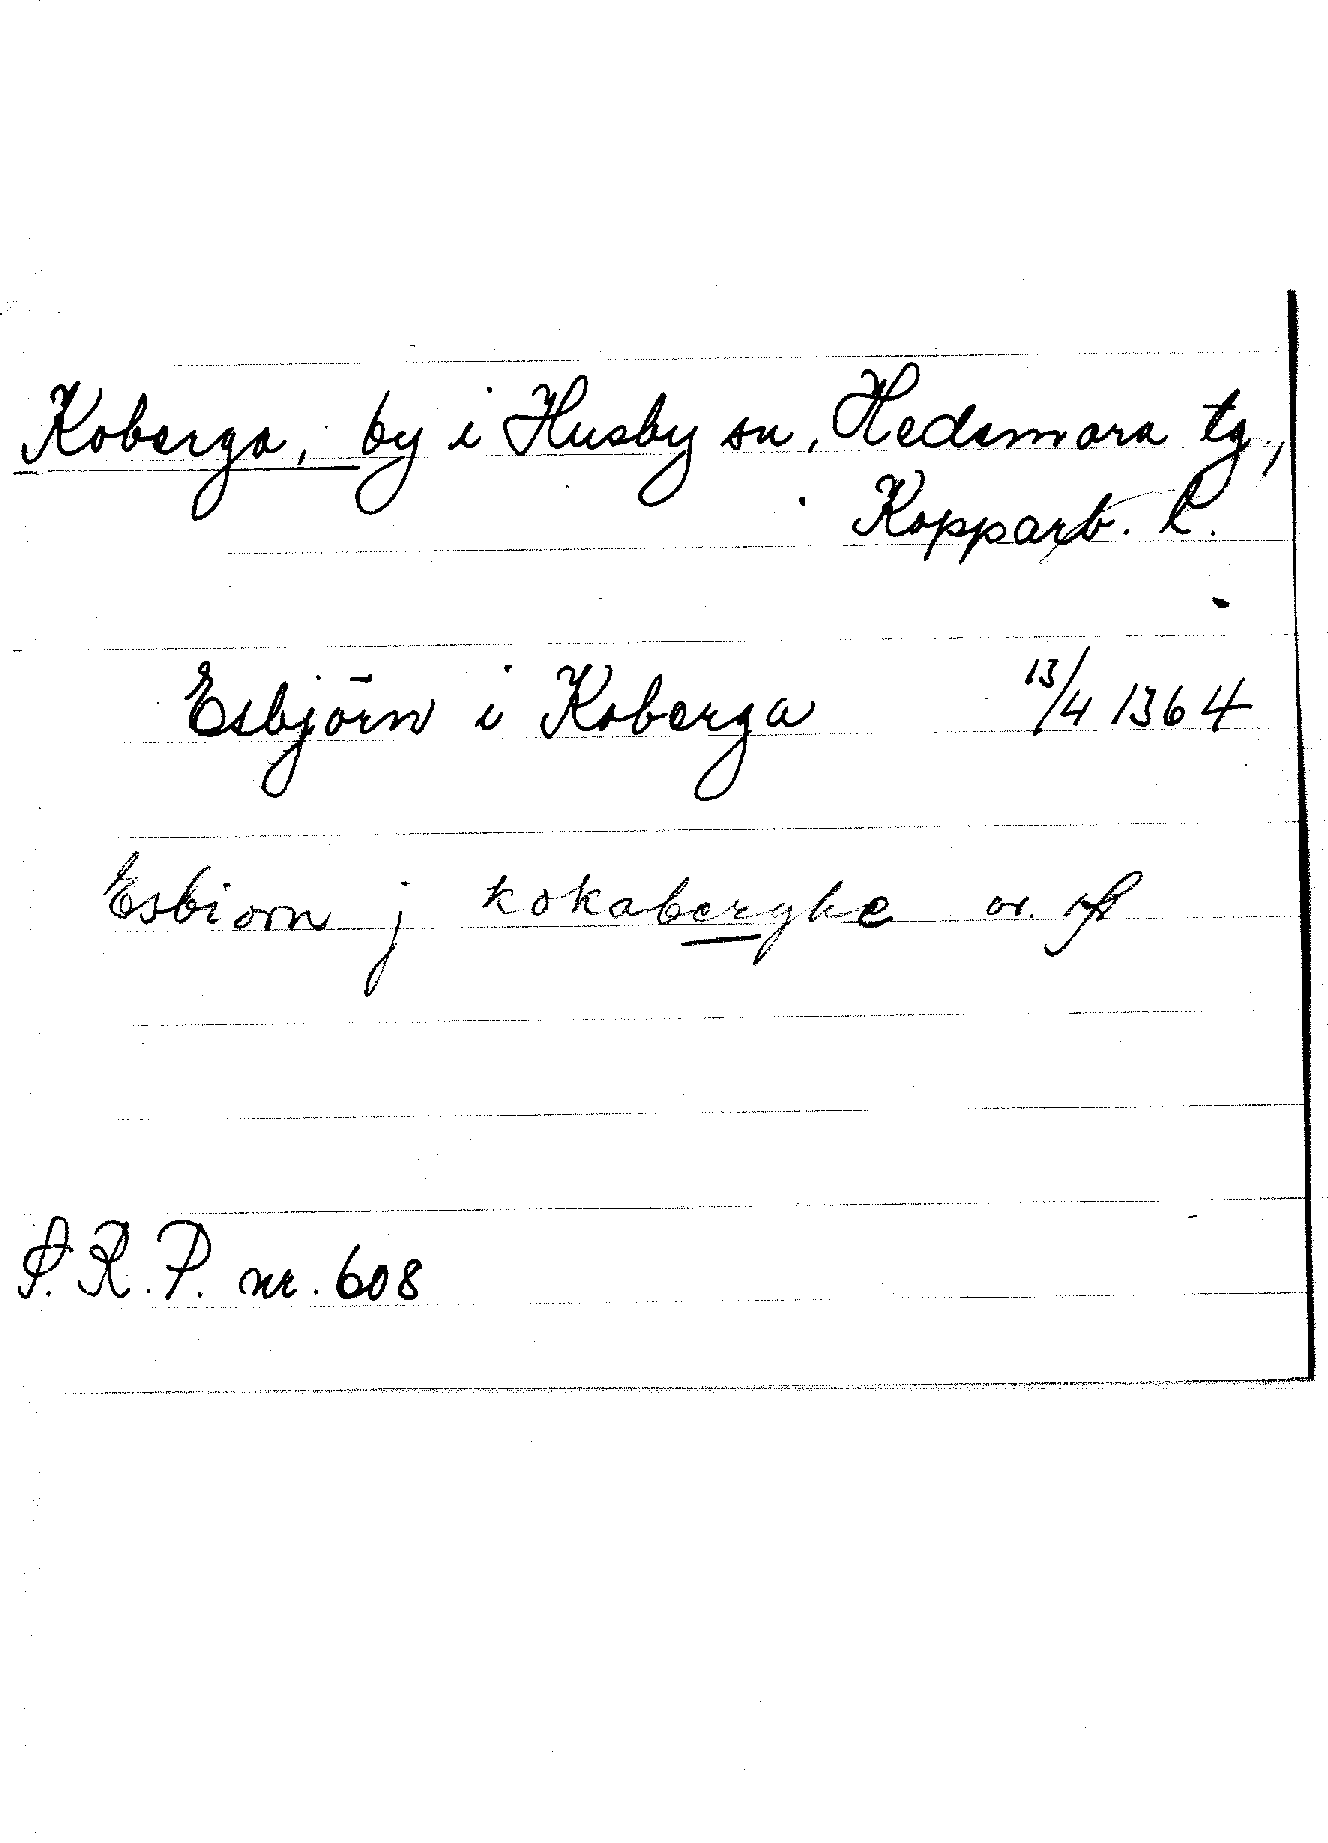 Koberga, by i Husby sn, Hedemora tg,
Kopparb. l.
Esbjörn i Koberga 13/4 1364
Esbiorn j kokaberghe or.
S.R.P. nr. 608